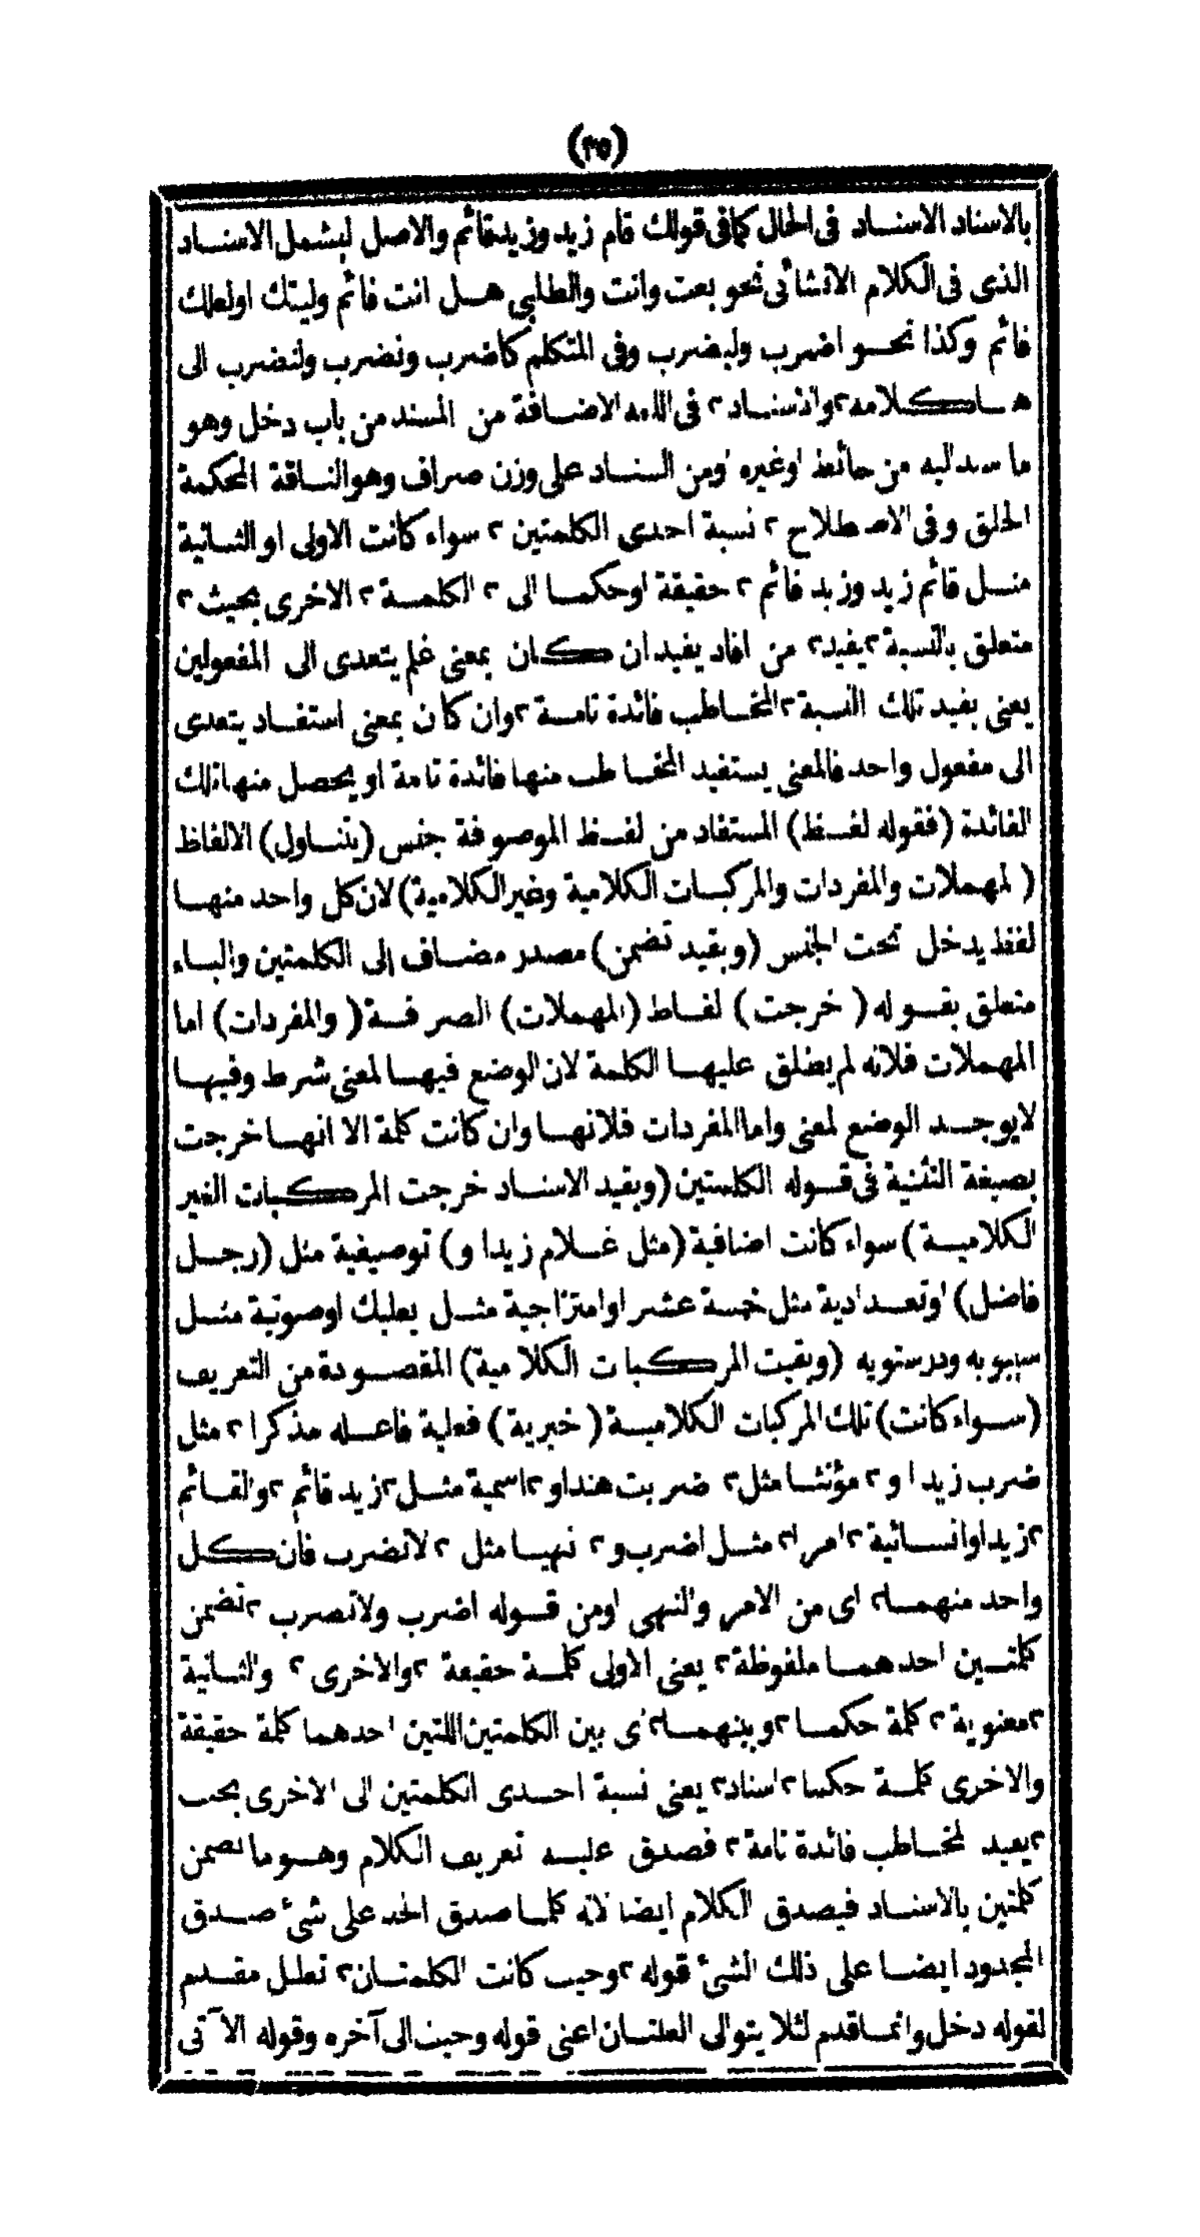 (٣٥)
بالاسناد الاسناد فى الحال كما فى قولك قام زيد وزيد قائم والاصل ليشمل الاسناد
الذى فى الكلام الانشائى نحو بعت وانت والطلبى هل انت قائم وليتك او لعلك
قائم وكذا نحو اضرب وليضرب وفى المتكلم كاضرب ونضرب ولنضرب الى
كلامه ٢ والاسناد ٢ فى اللغة الاضافة من المسند من باب دخل وهو
ما يسند اليه من حائط اوغيره اومن السناد على وزن صراف وهو الناقة المحكمة
الخلق وفى الاصطلاح ٢ نسبة احدى الكلمتين ٢ سواء كانت الاولى او الثانية
مثل قائم زيد وزيد قائم ٢ حقيقة اوحكما الى ٢ الكلمة ٢ الاخرى بحيث ٢
متعلق بالنسبة ٢ يفيد ٢ من افاد يفيد ان كان بمعنى علم يتعدى الى المفعولين
يعنى يفيد تلك النسبة ٢ المخاطب فائدة تامة ٢ وان كان بمعنى استفاد يتعدى
الى مفعول واحد فالمعنى يستفيد المخاطب منها فائدة تامة او يحصل منها تلك
الفائدة (فقوله لفظ) المستفاد من لفظ الموصوفة جنس (يتناول) الالفاظ
(المهملات والمفردات والمركبات الكلامية وغير الكلامية) لان كل واحد منها
لفظ يدخل تحت الجنس (وبقيد تضمن) مصدر مضاف الى الكلمتين والباء
متعلق بقوله (خرجت) لفاظ (المهملات) الصرفة (والمفردات) اما
المهملات فلانه لم يطلق عليها الكلمة لان الوضع فيها لمعنى شرط وفيها
لايوجد الوضع لمعنى واما المفردات فلانها وان كانت كلمة الا انها خرجت
بصيغة التثنية فى قوله الكلمتين (وبقيد الاسناد خرجت المركبات الغير
الكلامية) سواء كانت اضافية (مثل غلام زيد او) توصيفية مثل (رجل
فاضل) اوتعدادية مثل خمسة عشر او امتزاجية مثل بعلبك اوصوتية مثل
سيبويه ودرستويه (وبقيت المركبات الكلامية) المقصودة من التعريف
(سواء كانت) تلك المركبات الكلامية (خبرية) فعلية فاعله مذكرا ٢ مثل
ضرب زيد او ٢ مؤنثا مثل ٢ ضربت هند او ٢ اسمية مثل ٢ زيد قائم ٢ والقائم
٢ زيد اوانشائية ٢ امرا ٢ مثل اضرب و ٢ نهيا مثل ٢ لاتضرب فان كل
واحد منهما ٢ اى من الامر والنهى اومن قوله اضرب ولاتضرب ٢ تضمن
كلمتين احدهما ملفوظة ٢ يعنى الاولى كلمة حقيقة ٢ والاخرى ٢ والثانية
٢ معنوية ٢ كلمة حكما ٢ وبينهما ٢ اى بين الكلمتين اللتين احدهما كلمة حقيقة
والاخرى كلمة حكما ٢ اسناد ٢ يعنى نسبة احدى الكلمتين الى الاخرى بحيث
٢ يفيد المخاطب فائدة تامة ٢ فصدق عليه تعريف الكلام وهو ما تضمن
كلمتين بالاسناد فيصدق الكلام ايضا لانه كلما صدق الحد على شئ صدق
المحدود ايضا على ذلك الشئ قوله ٢ وحيث كانت الكلمتان ٢ تعليل مقدم
لقوله دخل وانما قدم لئلا يتوالى العلتان اعنى قوله وحيث الى آخره وقوله الآتى